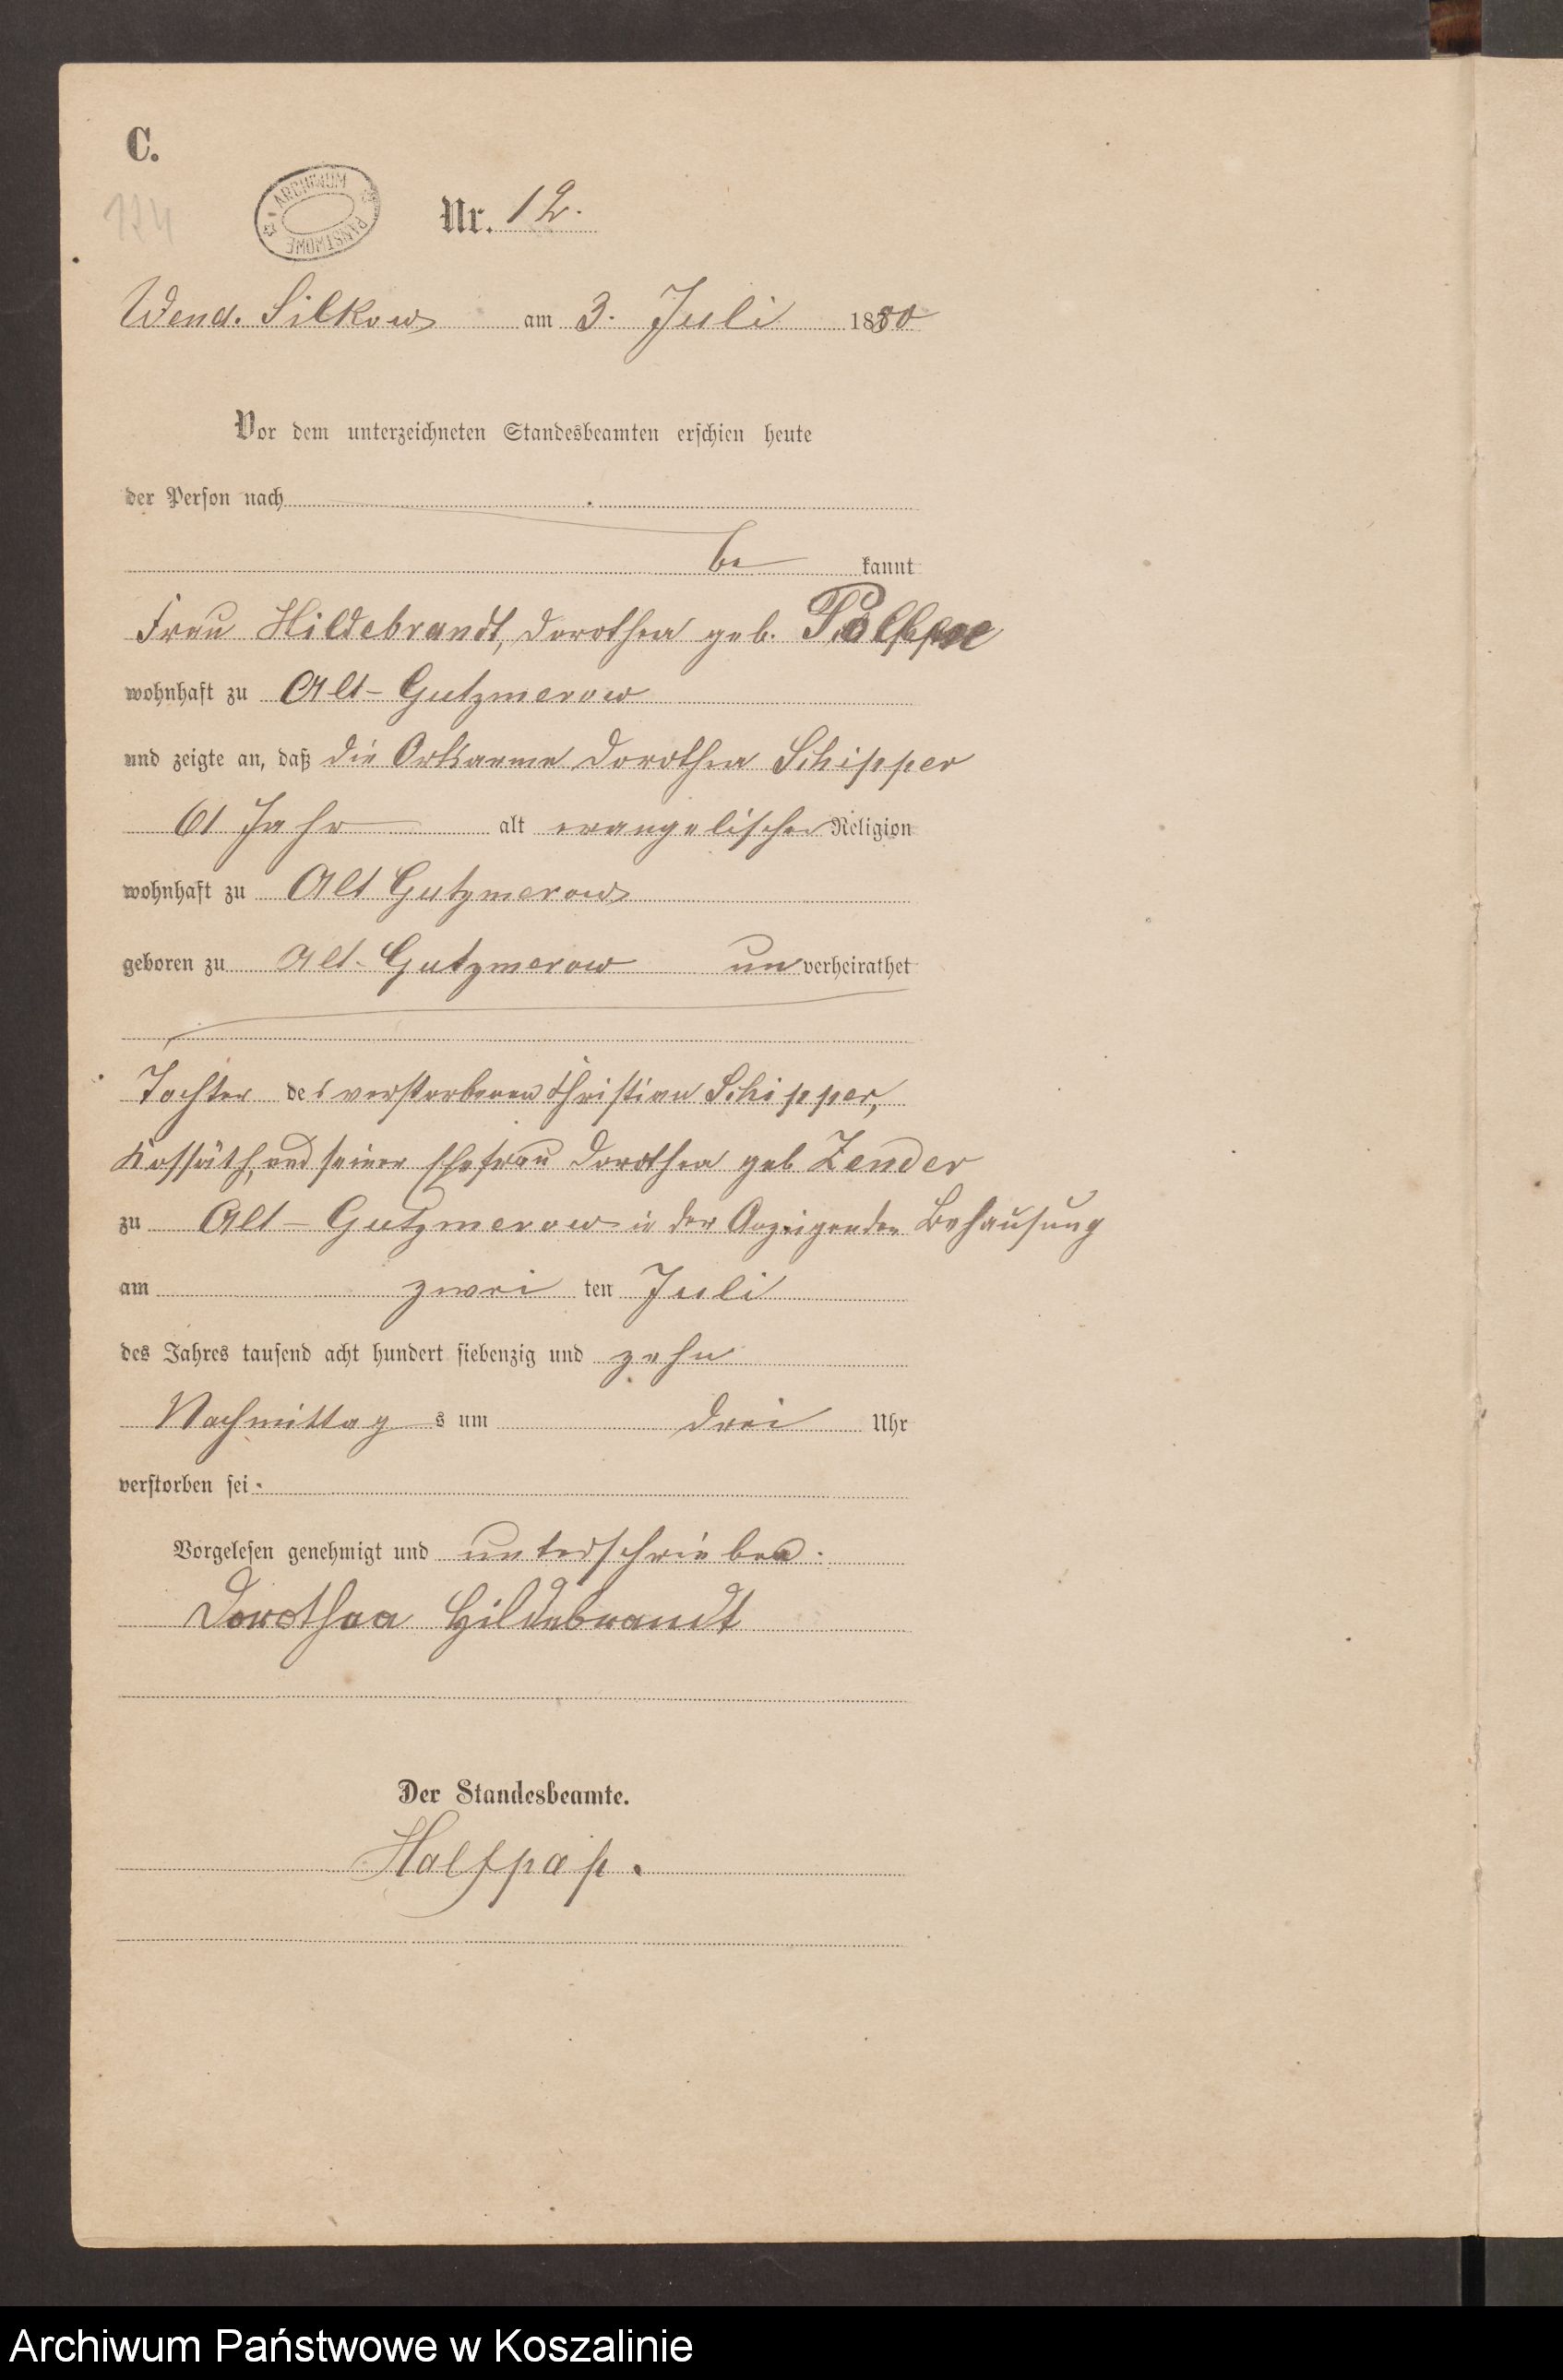 C.
124
ARCHIWUM PAŃSTWOWE
Nr. 12.
Wend. Silkow am 3. Juli 1880
Vor dem unterzeichneten Standesbeamten erschien heute
der Person nach
be kannt
Frau Hildebrandt, Dorothea geb.
wohnhaft zu Alt-Gutzmerow
und zeigte an, daß die Ortsarme Dorothea Schipper
61 Jahr alt evangelischer Religion
wohnhaft zu Alt Gutzmerow
geboren zu Alt-Gutzmerow un verheirathet
Tochter des verstorbenen Christian Schipper,
Kossäth, und seiner Ehefrau Dorothea geb Zender
zu Alt-Gutzmerow in der Anzeigenden Behausung
am zwei ten Juli
des Jahres tausend acht hundert siebenzig und zehn
Nachmittag s um drei Uhr
verstorben sei.
Vorgelesen genehmigt und unterschrieben.
Dorothea Hildebrandt
Der Standesbeamte.
Halfpap.
Archiwum Państwowe w Koszalinie